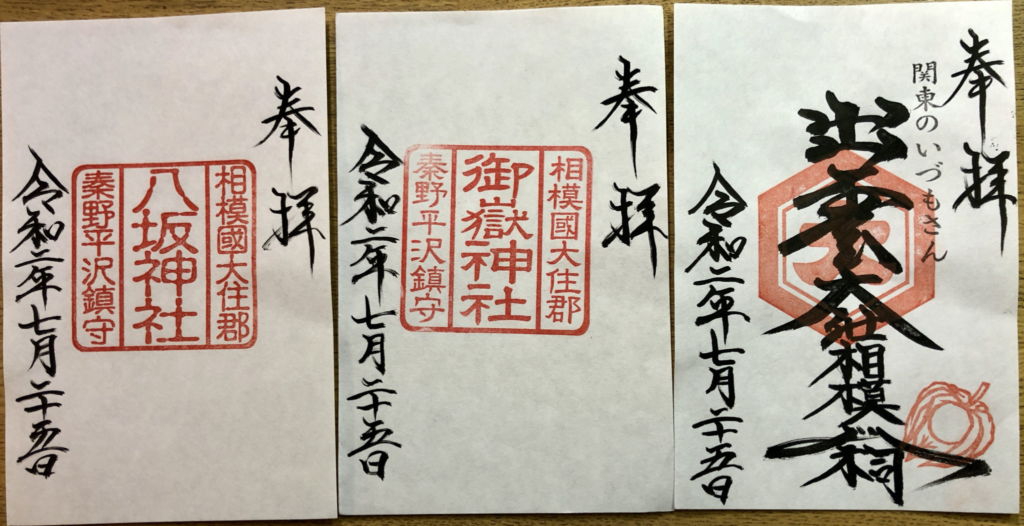 奉拝
相模國大住郡
八坂神社
秦野平沢鎮守
令和二年七月二十五日
奉拝
相模國大住郡
御嶽神社
秦野平沢鎮守
令和二年七月二十五日
奉拝
関東のいづもさん
出雲大社相模分祠
令和二年七月二十五日